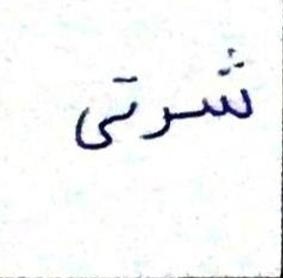 شرتی